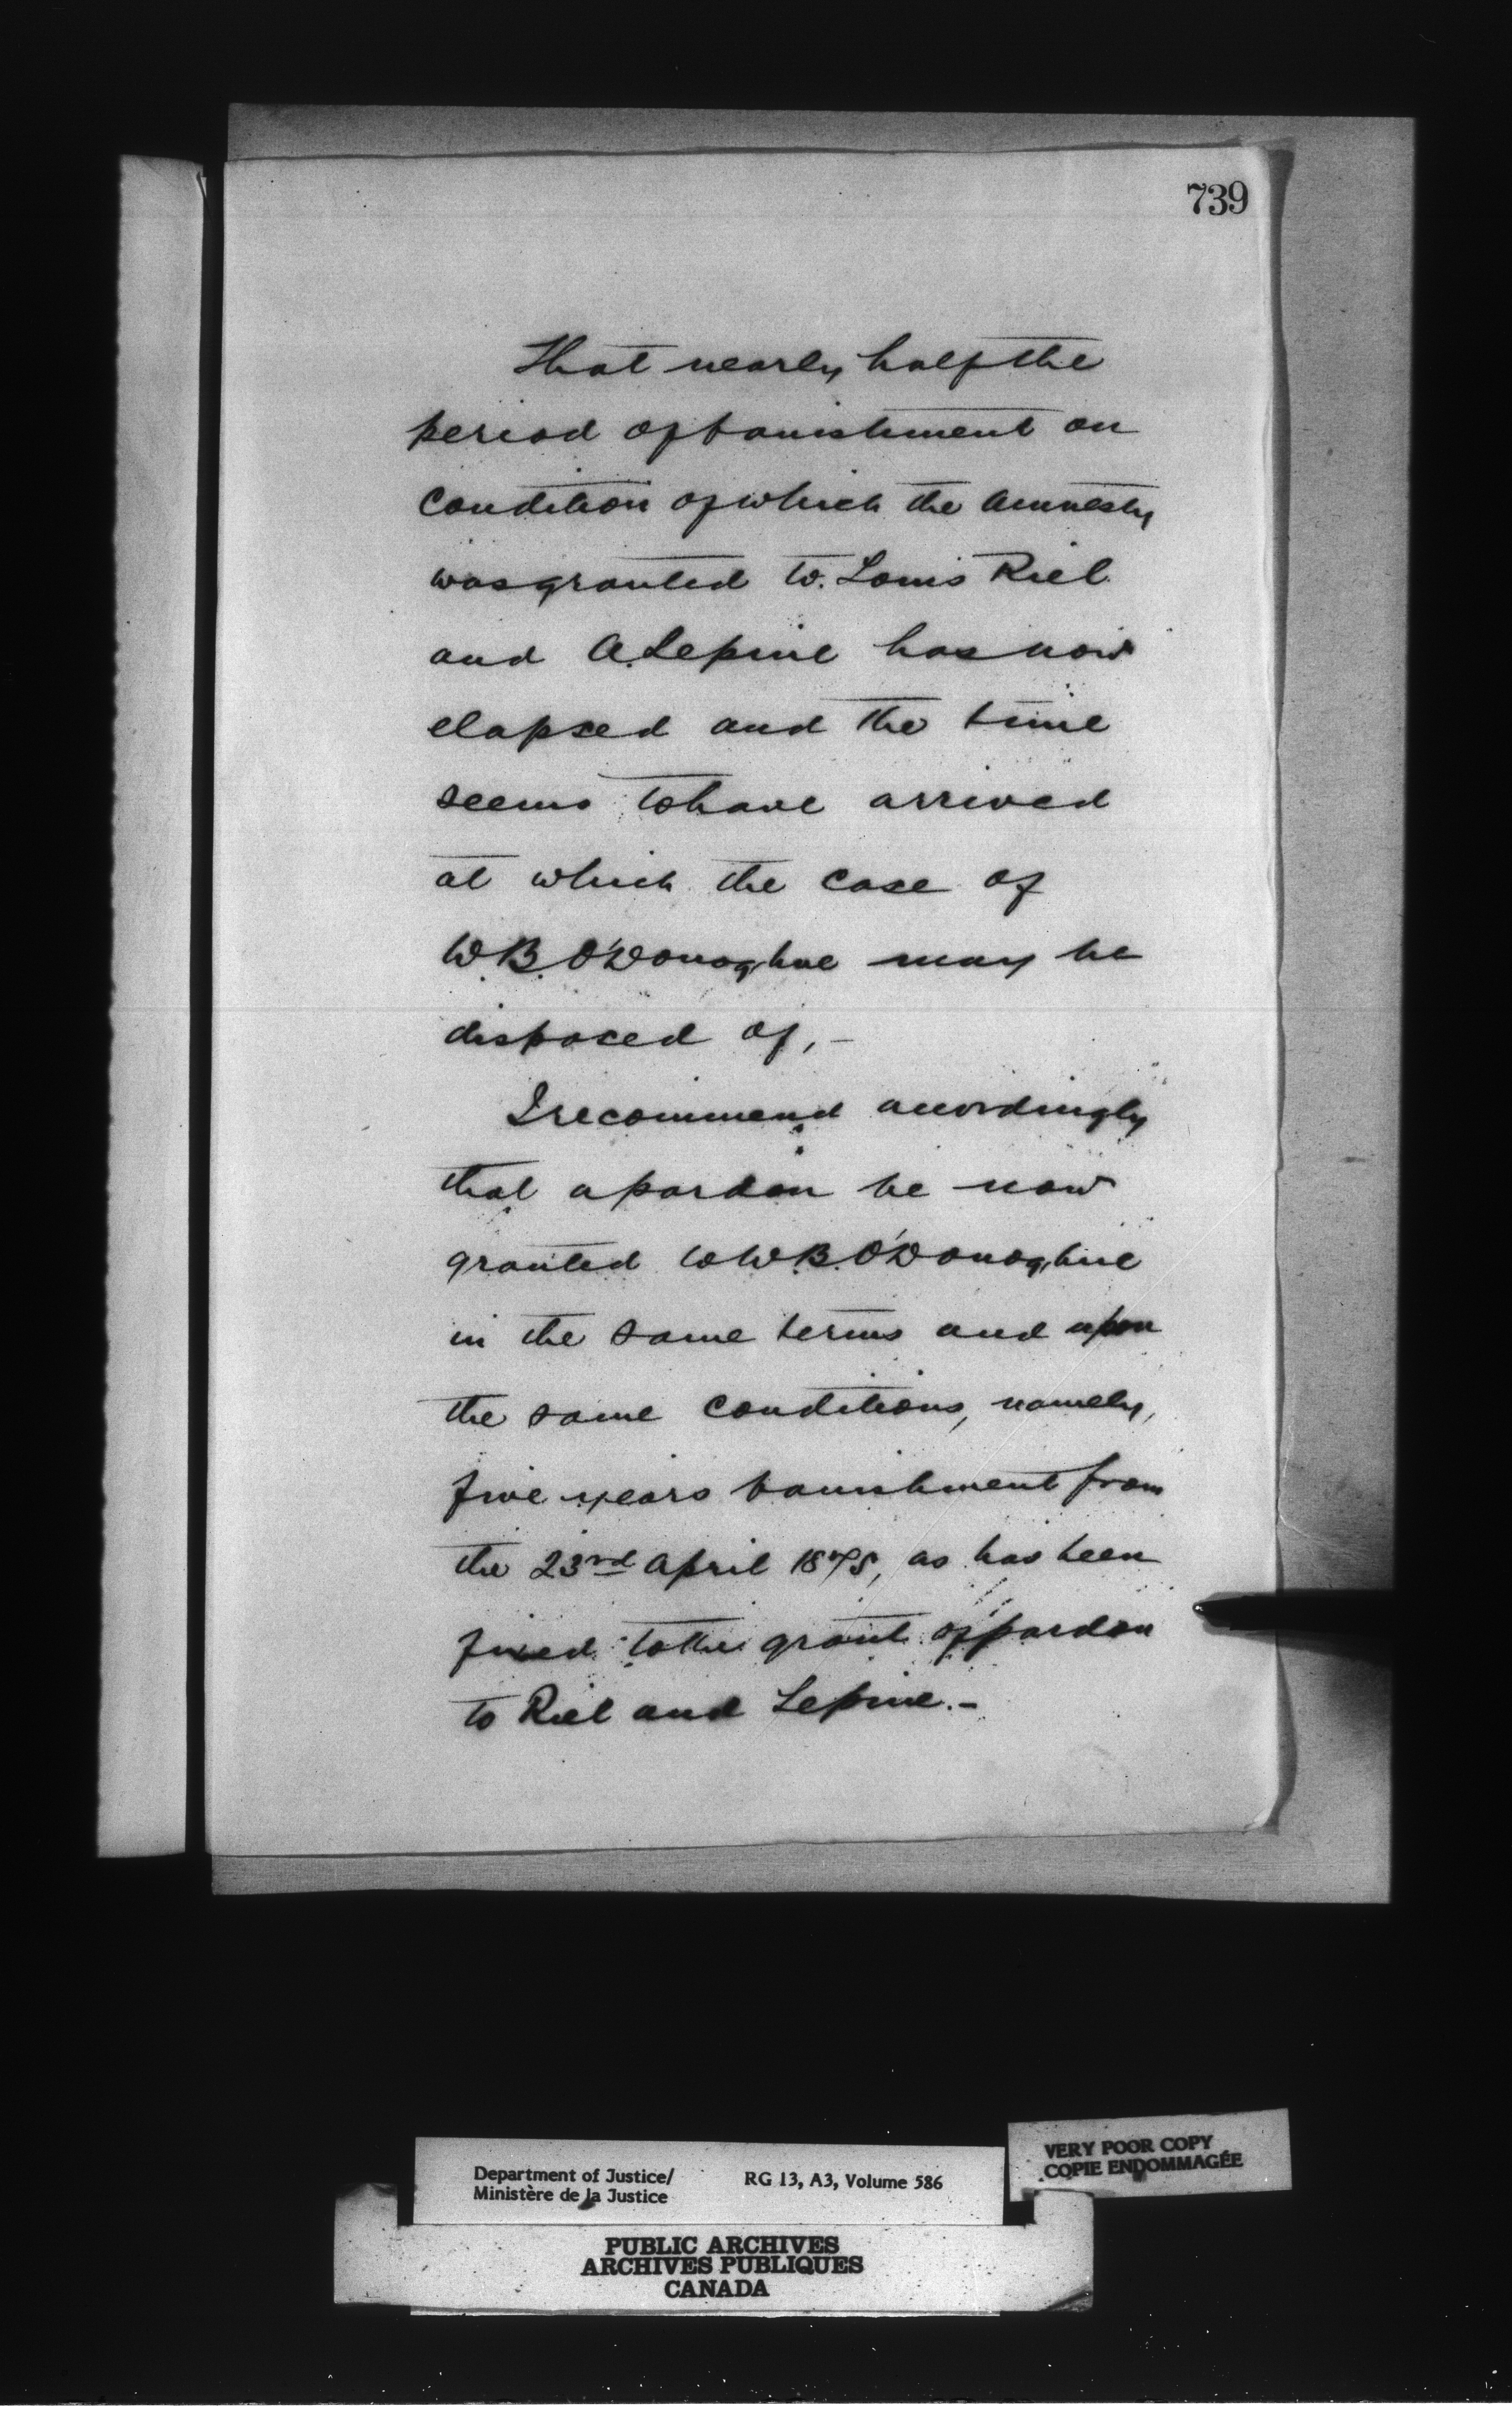 739
That nearly half the
period of banishment on
condition of which the Amnesty
was granted to Louis Riel
and A. Lepine has now
elapsed and the time
seems to have arrived
at which the case of
W.B. O'Donoghue may be
disposed of, –
I recommend accordingly
that a pardon be now
granted to W.B. O'Donoghue
in the same terms and upon
the same conditions, namely,
five years banishment from
the 23rd April 1875, as has been
fixed to the grant of pardon
to Riel and Lepine. –
VERY POOR COPY
COPIE ENDOMMAGÉE
Department of Justice/ RG 13, A3, Volume 586
Ministère de la Justice
PUBLIC ARCHIVES
ARCHIVES PUBLIQUES
CANADA